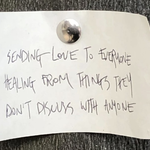 SENDING LOVE TO EVERYONE
HEALING FROM THINGS THEY
DON'T DISCUSS WITH ANYONE